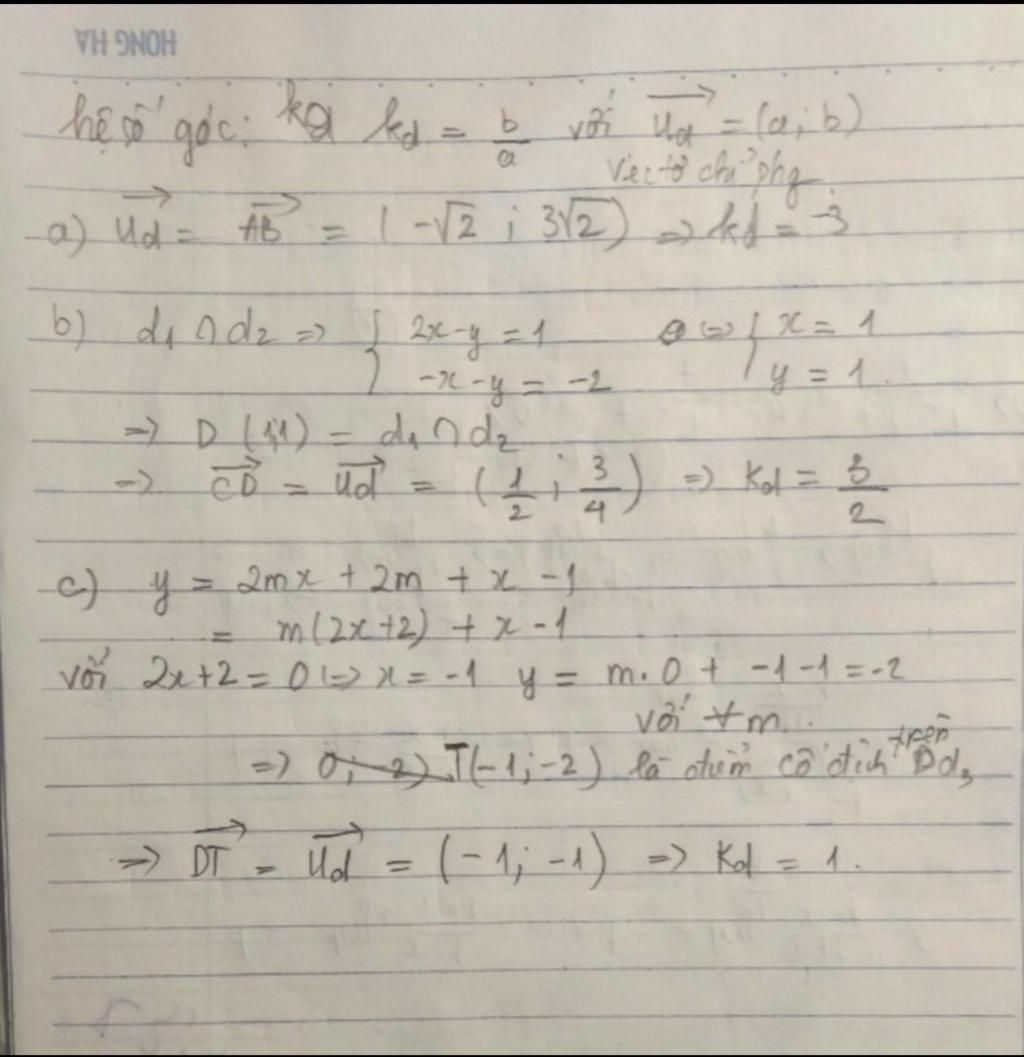 HONG HA
hệ số góc: kd kd = b/a với →ud = (a; b)
Vectơ chỉ phg
a) →ud = →AB = (-√2 ; 3√2) => kd = -3
b) d1 ∩ d2 => { 2x-y = 1 <=> { x = 1
-x-y = -2 y = 1.
=> D (1;1) = d1 ∩ d2
=> →CD = →ud = (1/2 ; 3/4) => kd = 3/2
c) y = 2mx + 2m + x - 1
= m(2x+2) + x - 1
với 2x+2 = 0 <=> x = -1 y = m.0 + -1-1 = -2
với ∀m.
=> T(-1;-2) là điểm cố định trên d3
=> →DT = →ud = (-1; -1) => Kd = 1.